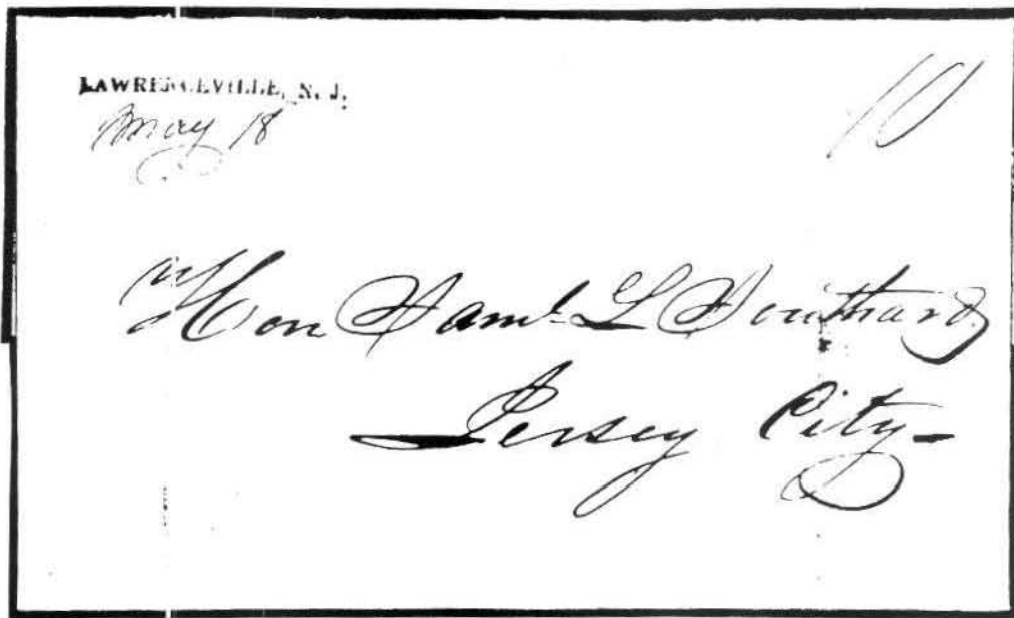 LAWRENCEVILLE, N. J.
May 18
10
Hon Saml. L Southard
Jersey City